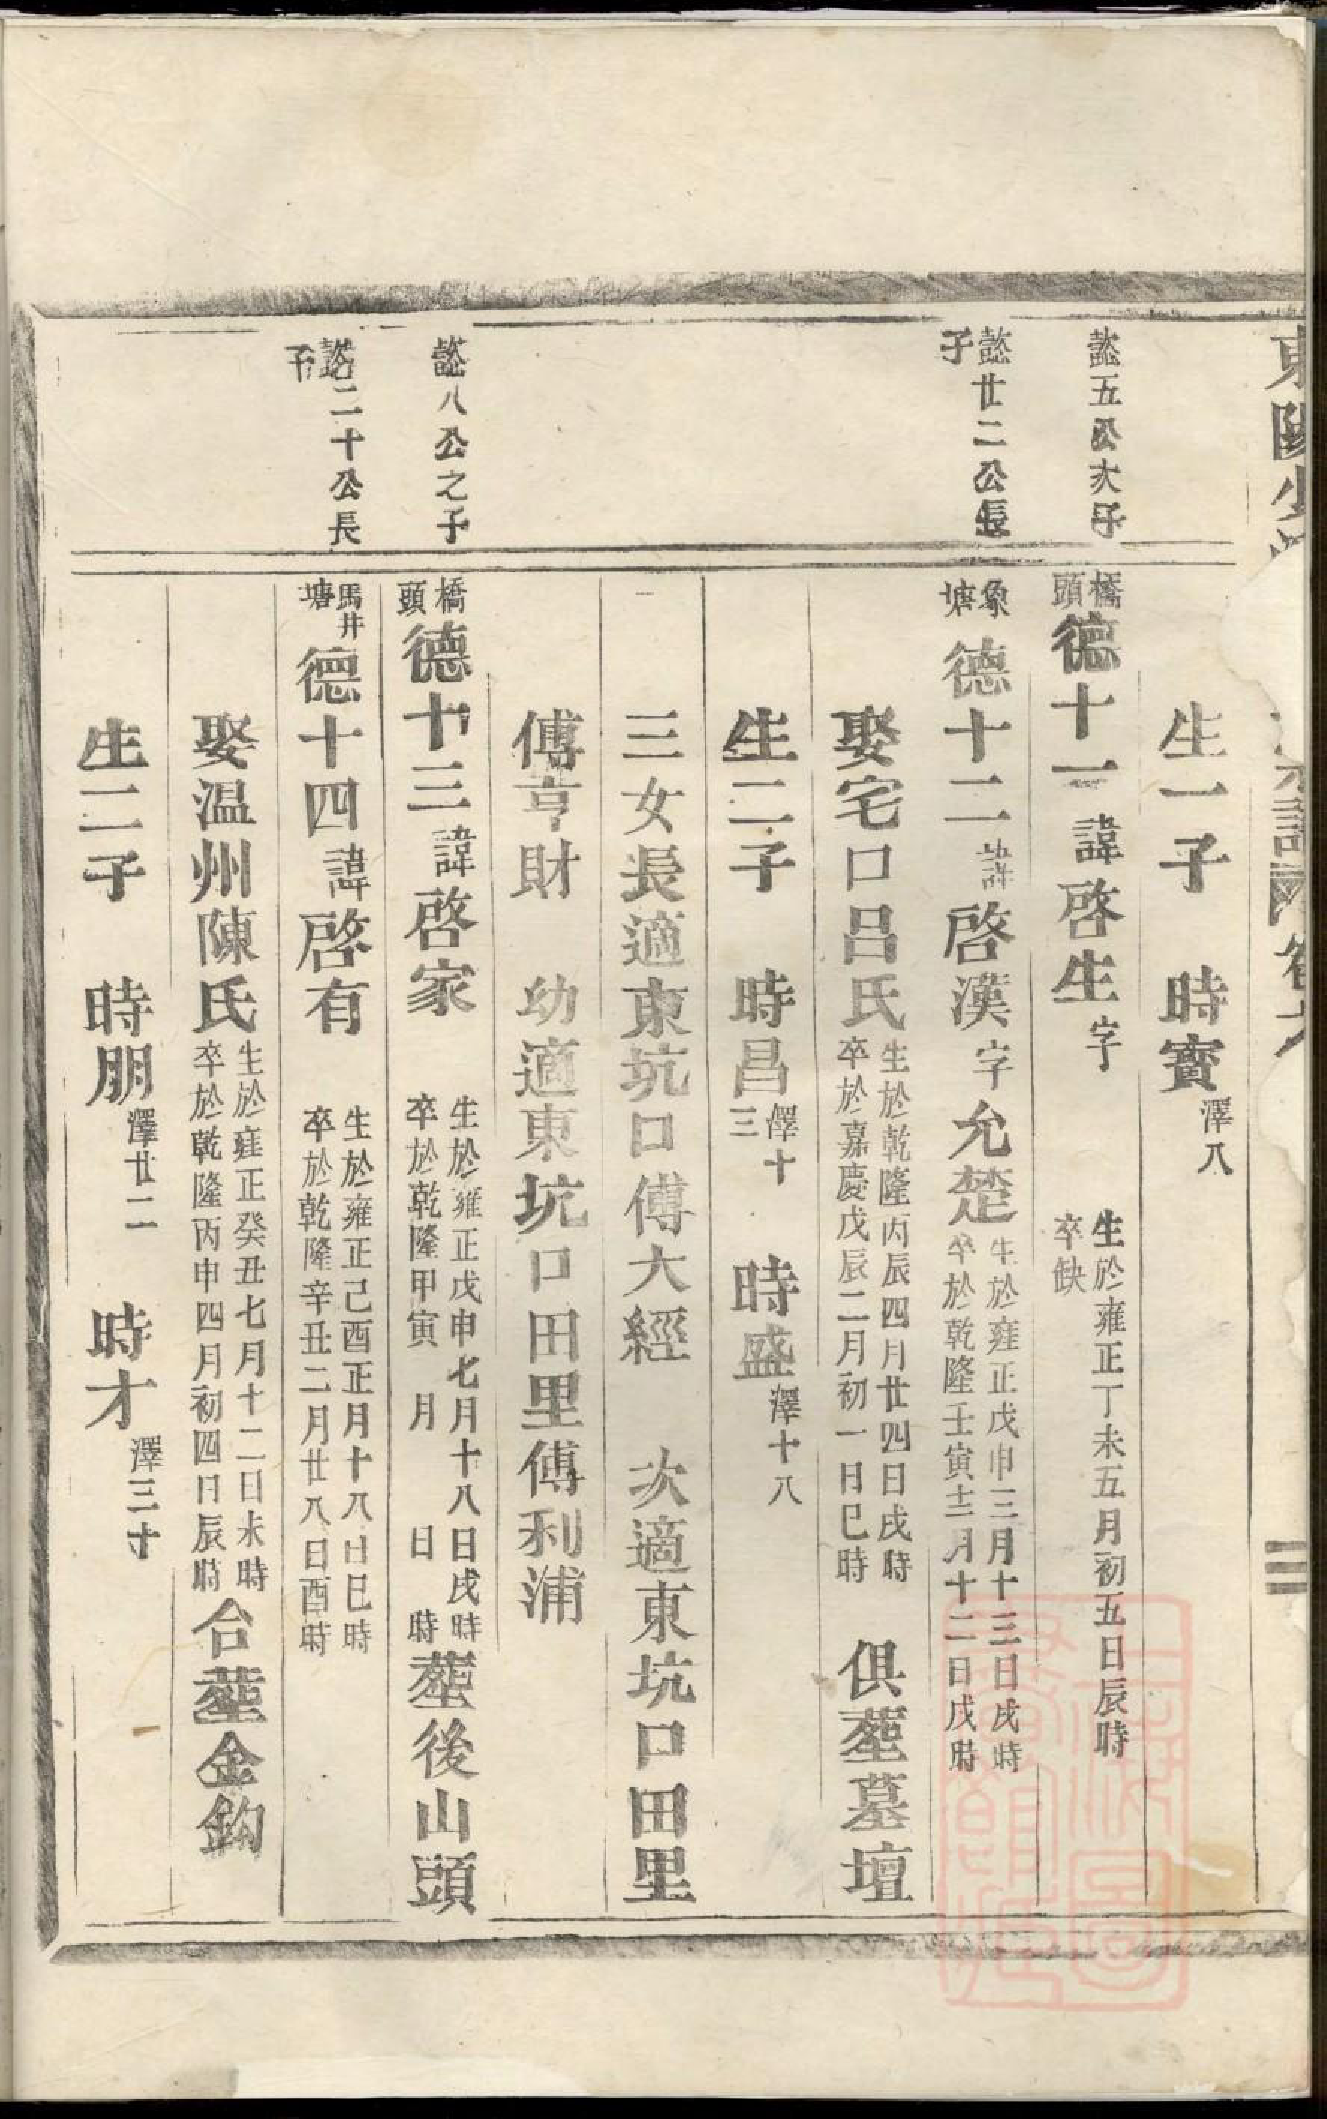 東陽
卷
生一子　時寶澤八
懿五公次子
橋頭德十一諱啓生字　生於雍正丁未五月初五日辰時
卒缺
懿廿二公長子
象塘德十二諱啓漢字允楚生於雍正戊申三月十三日戌時
卒於乾隆壬寅十二月十二日戌時
娶宅口呂氏生於乾隆丙辰四月廿四日戌時
卒於嘉慶戊辰二月初一日巳時　俱塟墓壇
生二子　時昌澤十三　時盛澤十八
三女長適東坑口傅大經　次適東坑口田里
傅亨財　幼適東坑口田里傅利浦
懿八公之子
橋頭德十三諱啓家　生於雍正戊申七月十八日戌時
卒於乾隆甲寅　月　日　時塟後山頭
懿二十公長子
馬井塘德十四諱啓有　生於雍正己酉正月十八日巳時
卒於乾隆辛丑二月廿八日酉時
娶温州陳氏生於雍正癸丑七月十二日未時
卒於乾隆丙申四月初四日辰時合塟金鈎
生二子　時朋澤廿二　時才澤三十